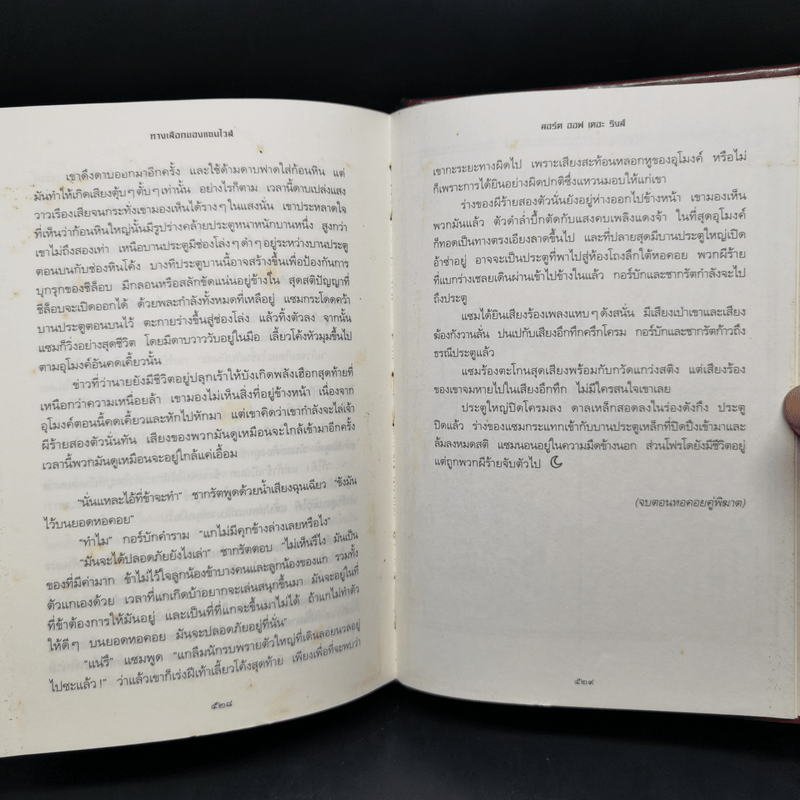 ทางเลือกของแซมไวส์
เขาดึงดาบออกมาอีกครั้ง และใช้ด้ามดาบฟาดใส่ก้อนหิน แต่
มันทำให้เกิดเสียงตุ้บๆตั้บๆเท่านั้น อย่างไรก็ตาม เวลานี้ดาบเปล่งแสง
วาวเรืองเสียจนกระทั่งเขามองเห็นได้รางๆในแสงนั้น เขาประหลาดใจ
ที่เห็นว่าก้อนหินใหญ่นั้นมีรูปร่างคล้ายประตูหนาหนักบานหนึ่ง สูงกว่า
เขาไม่ถึงสองเท่า เหนือบานประตูมีช่องโล่งๆดำๆอยู่ระหว่างบานประตู
ตอนบนกับช่องหินโค้ง บางทีประตูบานนี้อาจสร้างขึ้นเพื่อป้องกันการ
บุกรุกของชีล็อบ มีกลอนหรือสลักขัดแน่นอยู่ข้างใน สุดสติปัญญาที่
ชีล็อบจะเปิดออกได้ ด้วยพละกำลังทั้งหมดที่เหลืออยู่ แซมกระโดดคว้า
บานประตูตอนบนไว้ ตะกายร่างขึ้นสู่ช่องโล่ง แล้วทิ้งตัวลง จากนั้น
แซมก็วิ่งอย่างสุดชีวิต โดยมีดาบวาววับอยู่ในมือ เลี้ยวโค้งหัวมุมขึ้นไป
ตามอุโมงค์อันคดเคี้ยวนั้น
ข่าวที่ว่านายยังมีชีวิตอยู่ปลุกเร้าให้บังเกิดพลังเฮือกสุดท้ายที่
เหนือกว่าความเหนื่อยล้า เขามองไม่เห็นสิ่งที่อยู่ข้างหน้า เนื่องจาก
อุโมงค์ตอนนี้คดเคี้ยวและหักไปหักมา แต่เขาคิดว่าเขากำลังจะไล่เจ้า
ผีร้ายสองตัวนั่นทัน เสียงของพวกมันดูเหมือนจะใกล้เข้ามาอีกครั้ง
เวลานี้พวกมันดูเหมือนจะอยู่ใกล้แค่เอื้อม
"นั่นแหละไอ้ที่ข้าจะทำ" ชากรัตพูดด้วยน้ำเสียงฉุนเฉียว "ขังมัน
ไว้บนยอดหอคอย"
"ทำไม" กอร์บักคำราม "แกไม่มีคุกข้างล่างเลยหรือไง"
"มันจะได้ปลอดภัยยังไงเล่า" ชากรัตตอบ "ไม่เห็นรึไง มันเป็น
ของที่มีค่ามาก ข้าไม่ไว้ใจลูกน้องข้าบางคนและลูกน้องของแก รวมทั้ง
ตัวแกเองด้วย เวลาที่แกเกิดบ้าอยากจะเล่นสนุกขึ้นมา มันจะอยู่ในที่
ที่ข้าต้องการให้มันอยู่ และเป็นที่ที่แกจะขึ้นมาไม่ได้ ถ้าแกไม่ทำตัว
ให้ดีๆ บนยอดหอคอย มันจะปลอดภัยอยู่ที่นั่น"
"แน่รึ" แซมพูด "แกลืมนักรบพรายตัวใหญ่ที่เดินลอยนวลอยู่
ไปซะแล้ว!" ว่าแล้วเขาก็เร่งฝีเท้าเลี้ยวโค้งสุดท้าย เพียงเพื่อที่จะพบว่า
๕๒๘
ลอร์ด ออฟ เดอะ ริงส์
เขากะระยะทางผิดไป เพราะเสียงสะท้อนหลอกหูของอุโมงค์ หรือไม่
ก็เพราะการได้ยินอย่างผิดปกติซึ่งแหวนมอบให้แก่เขา
ร่างของผีร้ายสองตัวนั่นยังอยู่ห่างออกไปข้างหน้า เขามองเห็น
พวกมันแล้ว ตัวดำล่ำปึ้กตัดกับแสงคบเพลิงแดงจ้า ในที่สุดอุโมงค์
ก็ทอดเป็นทางตรงเอียงลาดขึ้นไป และที่ปลายสุดมีบานประตูใหญ่เปิด
อ้าซ่าอยู่ อาจจะเป็นประตูที่พาไปสู่ห้องโถงลึกใต้หอคอย พวกผีร้าย
ที่แบกร่างเชลยเดินผ่านเข้าไปข้างในแล้ว กอร์บักและชากรัตกำลังจะไป
ถึงประตู
แซมได้ยินเสียงร้องเพลงแหบๆดังสนั่น มีเสียงเป่าเขาและเสียง
ฆ้องกังวานลั่น ปนเปกับเสียงอึกทึกครึกโครม กอร์บักและชากรัตก้าวถึง
ธรณีประตูแล้ว
แซมร้องตะโกนสุดเสียงพร้อมกับกวัดแกว่งสติง แต่เสียงร้อง
ของเขาจมหายไปในเสียงอึกทึก ไม่มีใครสนใจเขาเลย
ประตูใหญ่ปิดโครมลง ดาลเหล็กสอดลงในร่องดังกึง ประตู
ปิดแล้ว ร่างของแซมกระแทกเข้ากับบานประตูเหล็กที่ปิดปึงเข้ามาและ
ล้มลงหมดสติ แซมนอนอยู่ในความมืดข้างนอก ส่วนโฟรโดยังมีชีวิตอยู่
แต่ถูกพวกผีร้ายจับตัวไป
(จบตอนหอคอยคู่พิฆาต)
๕๒๙